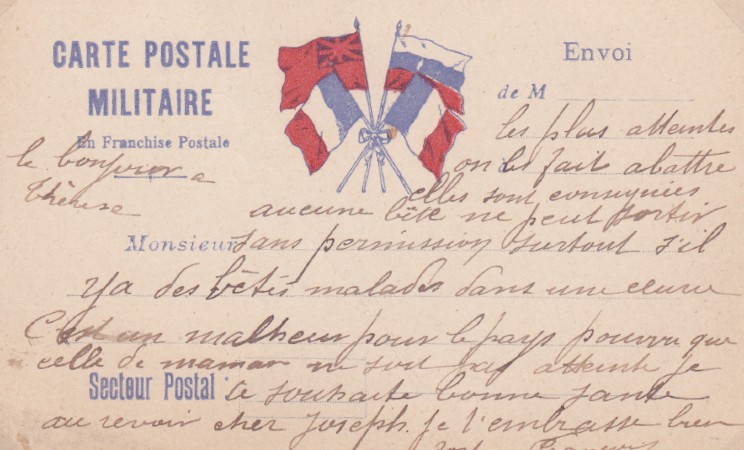 CARTE POSTALE
MILITAIRE
En Franchise Postale
Envoi
de M
le bonjour a
Thérese
les plus atteintes
on les fait abattre
elles sont consignées
aucune bête ne peut sortir
Monsieur
sans permission surtout s'il
ya des bêtes malades dans une
C'est un malheur pour le pays pourvu que
celle de maman ne soit pas atteinte je
Secteur Postal
te souhaite bonne sante
au revoir cher Joseph. je t'embrasse bien